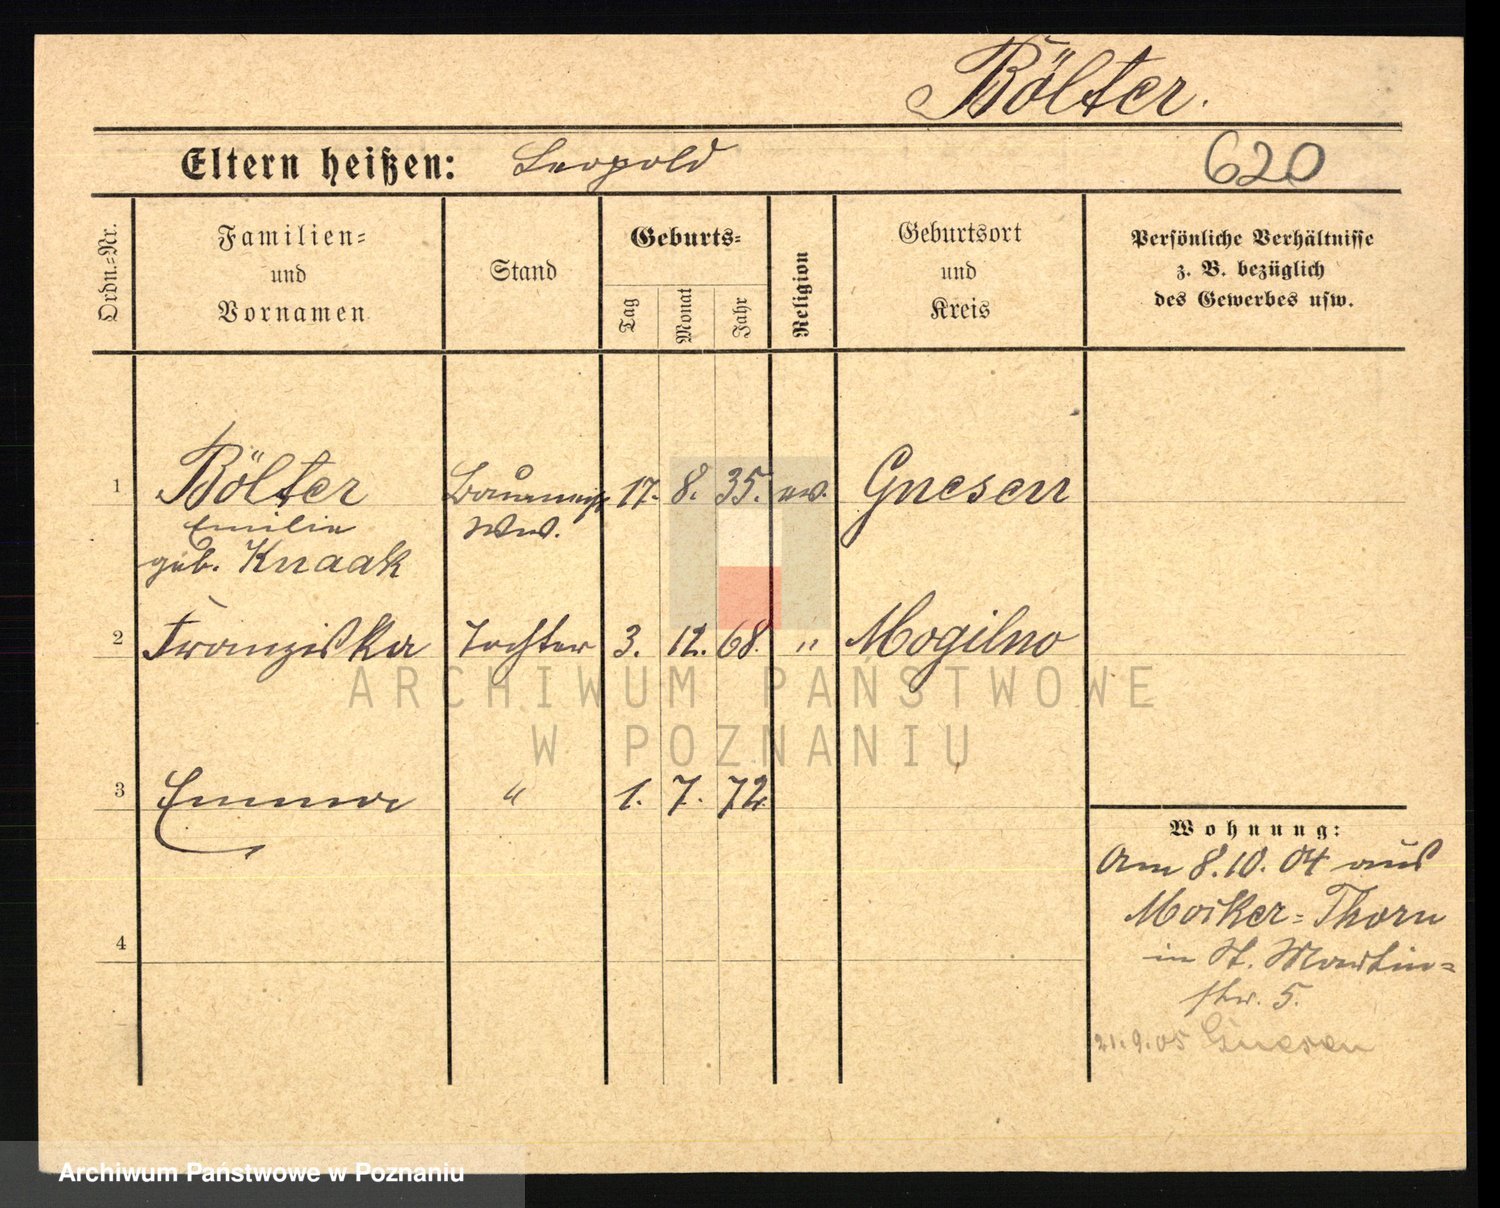 Bölter.
Eltern heißen: Leopold
620
Ordn.-Nr.
Familien-
und
Vornamen
Stand
Geburts-
Tag
Monat
Jahr
Religion
Geburtsort
und
Kreis
Persönliche Verhältnisse
z. B. bezüglich
des Gewerbes usw.
1 Bölter 17. 8. 35. ev. Gnesen
Emilie Ww.
geb. Knaak
2 Franziska Tochter 3. 12. 68. " Mogilno
3 Emma " 1. 7. 72.
4
Wohnung:
Am 8.10.04 aus
Mocker-Thorn
in St. Martin-
str. 5.
21.9.05 Gnesen
ARCHIWUM PAŃSTWOWE
W POZNANIU
Archiwum Państwowe w Poznaniu